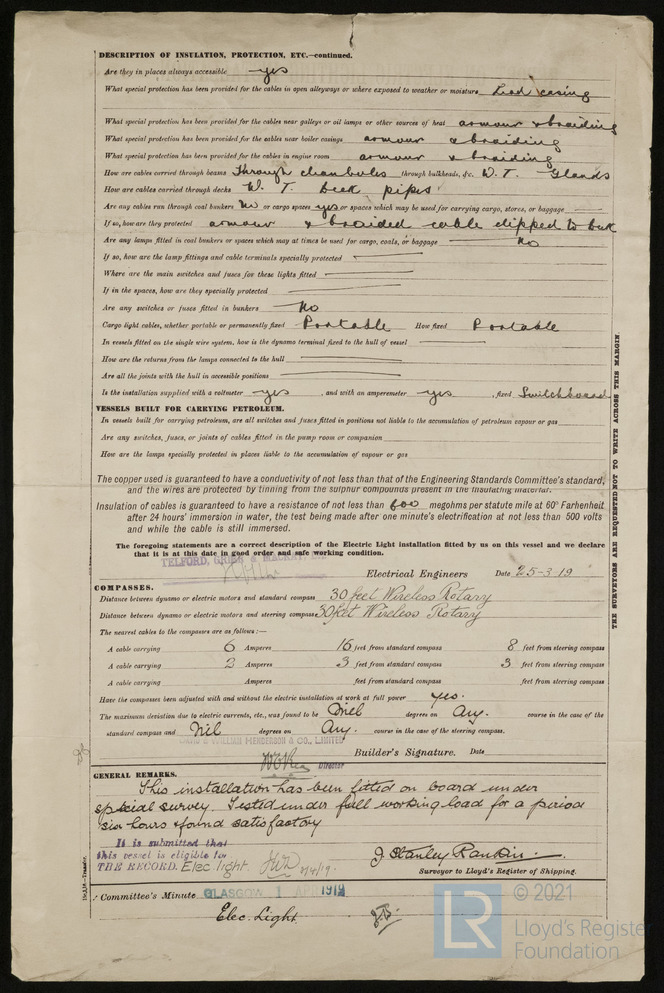 DESCRIPTION OF INSULATION, PROTECTION, ETC.—continued.
Are they in places always accessible yes
What special protection has been provided for the cables in open alleyways or where exposed to weather or moisture Lead casing
What special protection has been provided for the cables near galleys or oil lamps or other sources of heat armour & braiding
What special protection has been provided for the cables near boiler casings armour & braiding
What special protection has been provided for the cables in engine room armour & braiding
How are cables carried through beams Through chambules through bulkheads, &c. W. T. Glands
How are cables carried through decks W. T. Deck pipes
Are any cables run through coal bunkers No or cargo spaces yes or spaces which may be used for carrying cargo, stores, or baggage
If so, how are they protected armour & braided cable clipped to
Are any lamps fitted in coal bunkers or spaces which may at times be used for cargo, coals, or baggage No
If so, how are the lamp fittings and cable terminals specially protected
Where are the main switches and fuses for these lights fitted
If in the spaces, how are they specially protected
Are any switches or fuses fitted in bunkers No
Cargo light cables, whether portable or permanently fixed Portable How fixed Portable
In vessels fitted on the single wire system, how is the dynamo terminal fixed to the hull of vessel
How are the returns from the lamps connected to the hull
Are all the joints with the hull in accessible positions
Is the installation supplied with a voltmeter yes , and with an amperemeter yes , fixed Switchboard
VESSELS BUILT FOR CARRYING PETROLEUM.
In vessels built for carrying petroleum, are all switches and fuses fitted in positions not liable to the accumulation of petroleum vapour or gas
Are any switches, fuses, or joints of cables fitted in the pump room or companion
How are the lamps specially protected in places liable to the accumulation of vapour or gas
The copper used is guaranteed to have a conductivity of not less than that of the Engineering Standards Committee's standard,
and the wires are protected by tinning from the sulphur compounds present in the insulating material.
Insulation of cables is guaranteed to have a resistance of not less than 600 megohms per statute mile at 60° Farhenheit
after 24 hours' immersion in water, the test being made after one minute's electrification at not less than 500 volts
and while the cable is still immersed.
The foregoing statements are a correct description of the Electric Light installation fitted by us on this vessel and we declare
that it is at this date in good order and safe working condition.
TELFORD, GRIER & MACKAY, LTD
Electrical Engineers Date 25-3-19
COMPASSES.
Distance between dynamo or electric motors and standard compass 30 feet Wireless Rotary
Distance between dynamo or electric motors and steering compass 30 feet Wireless Rotary
The nearest cables to the compasses are as follows:—
A cable carrying 6 Amperes 16 feet from standard compass 8 feet from steering compass
A cable carrying 2 Amperes 3 feet from standard compass 3 feet from steering compass
A cable carrying Amperes feet from standard compass feet from steering compass
Have the compasses been adjusted with and without the electric installation at work at full power yes.
The maximum deviation due to electric currents, etc., was found to be Nil degrees on Any. course in the case of the
standard compass and Nil degrees on Any. course in the case of the steering compass.
DAVID & WILLIAM HENDERSON & CO., LIMITED
Director Builder's Signature. Date
GENERAL REMARKS.
This installation has been fitted on board under
special survey. Tested under full working load for a period
six hours & found satisfactory
It is submitted that
this vessel is eligible for
THE RECORD. Elec light. 2/4/19.
J. Stanley Rankin.
Surveyor to Lloyd's Register of Shipping.
Committee's Minute GLASGOW 1 APR 1919
Elec. Light
THE SURVEYORS ARE REQUESTED NOT TO WRITE ACROSS THIS MARGIN.
LR
© 2021
Lloyd's Register
Foundation